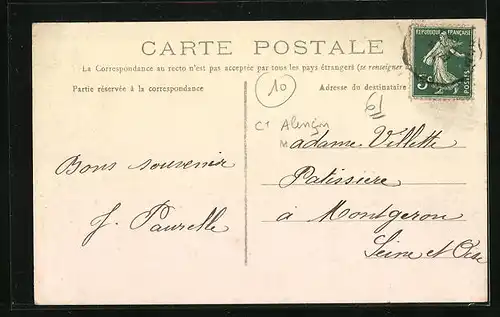 CARTE POSTALE
La Correspondance au recto n'est pas acceptée par tous les pays étrangers (se renseigner
Partie réservée à la correspondance
Adresse du destinataire
REPUBLIQUE FRANÇAISE
5c
POSTES
10
C1 Alençon
Madame Villette
Patissiere
à Montgeron
Seine et Oise
Bons souvenir
J.